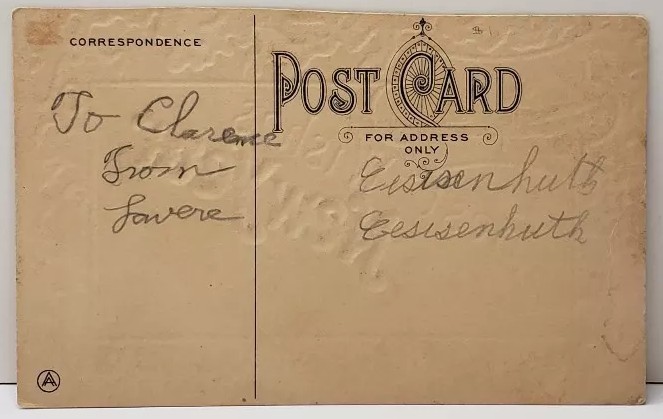 CORRESPONDENCE
POST CARD
FOR ADDRESS
ONLY
To Clarence
From
Lavere
Eisisenhuth
Eesisenhuth
A